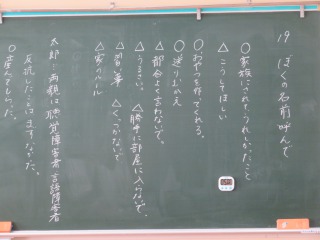 19 ぼくの名前呼んで
○家族にされてうれしかったこと
△こうしてほしい
○おやつを作ってくれる。
○送りむかえ
△都合よく言わないで。
△うるさい。 △勝手に部屋に入らないで。
△習い事 △くっつかないで
△家のルール
太郎と両親は聴覚障害者言語障害者
反抗したことはまずなかった。
○産んでもらった。